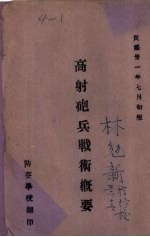 4-1
民國廿一年七月初版
高射砲兵戰術概要
林紀新
防空學校翻印